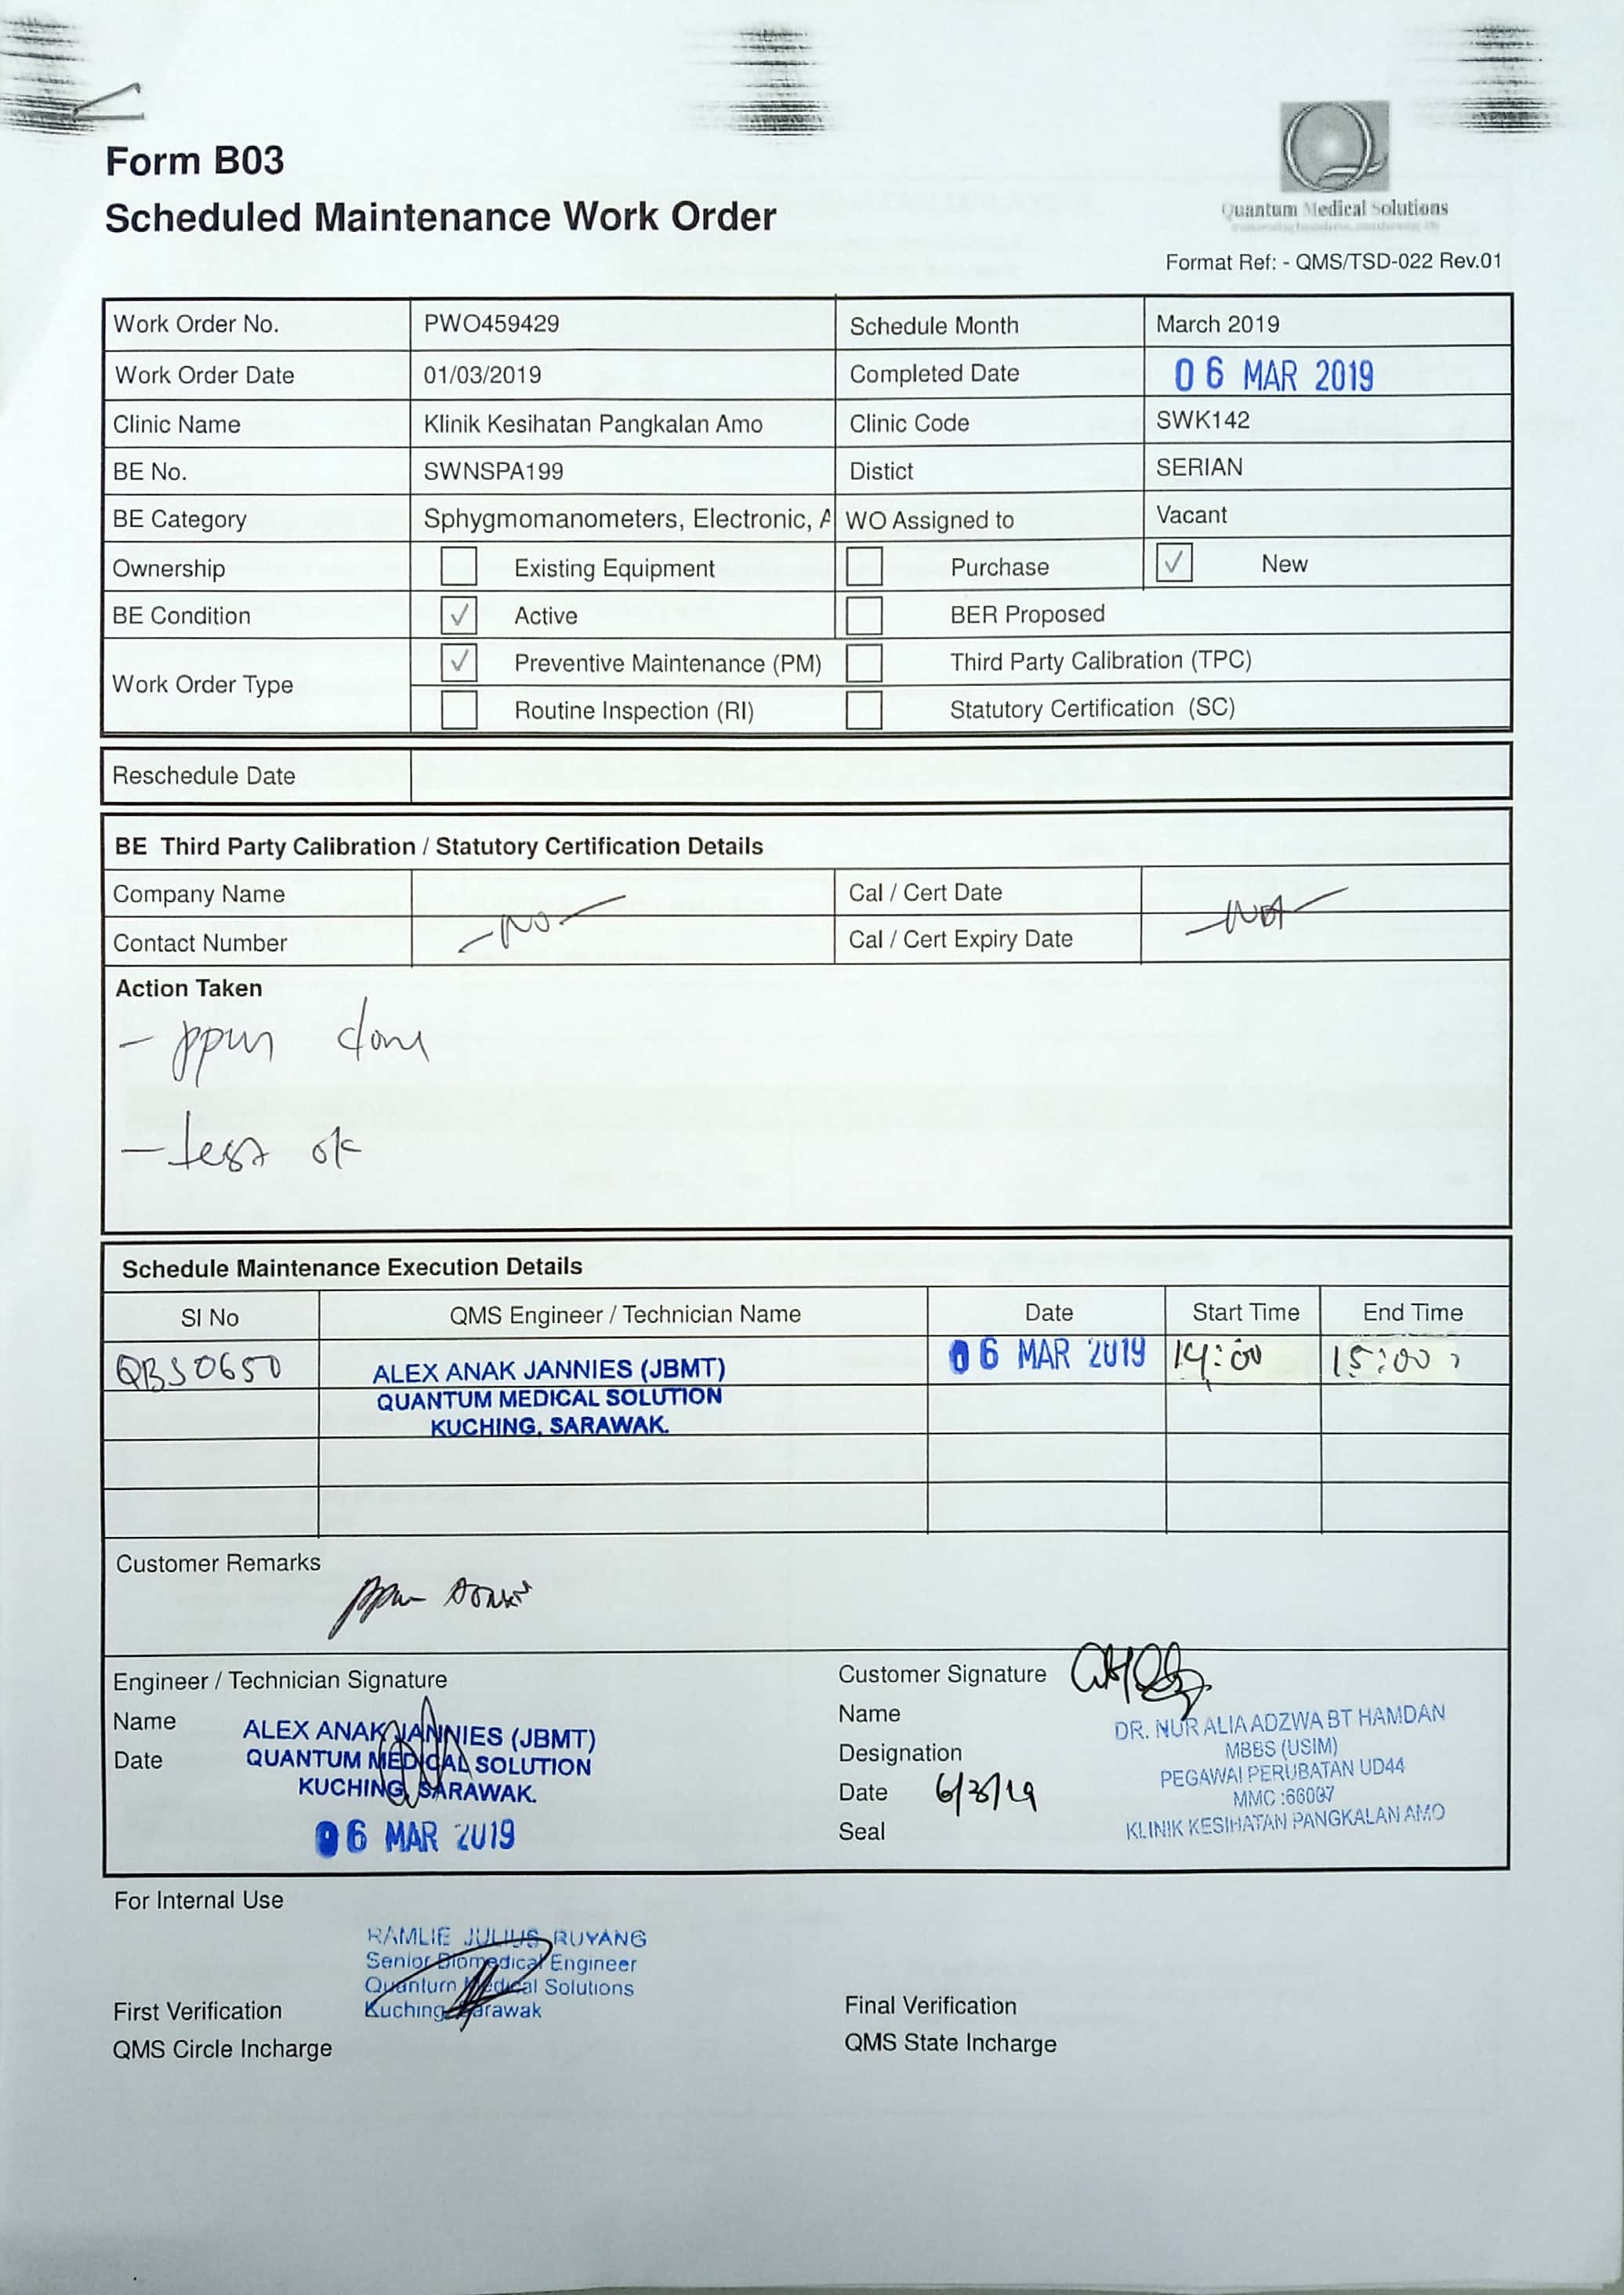 Form B03
Scheduled Maintenance Work Order
Quantum Medical Solutions
Format Ref: - QMS/TSD-022 Rev.01
Work Order No. PWO459429 Schedule Month March 2019
Work Order Date 01/03/2019 Completed Date 06 MAR 2019
Clinic Name Klinik Kesihatan Pangkalan Amo Clinic Code SWK142
BE No. SWNSPA199 Distict SERIAN
BE Category Sphygmomanometers, Electronic, A WO Assigned to Vacant
Ownership Existing Equipment Purchase ✓ New
BE Condition ✓ Active BER Proposed
Work Order Type ✓ Preventive Maintenance (PM) Third Party Calibration (TPC)
Routine Inspection (RI) Statutory Certification (SC)
Reschedule Date
BE Third Party Calibration / Statutory Certification Details
Company Name Cal / Cert Date
Contact Number Cal / Cert Expiry Date
Action Taken
- ppm done
- test ok
Schedule Maintenance Execution Details
SI No QMS Engineer / Technician Name Date Start Time End Time
QBS0650 ALEX ANAK JANNIES (JBMT) 06 MAR 2019 14:00 15:00
QUANTUM MEDICAL SOLUTION
KUCHING, SARAWAK.
Customer Remarks
ppm done
Engineer / Technician Signature Customer Signature
Name ALEX ANAK JANNIES (JBMT) Name DR. NUR ALIA ADZWA BT HAMDAN
Date QUANTUM MEDICAL SOLUTION Designation MBBS (USIM)
KUCHING, SARAWAK. PEGAWAI PERUBATAN UD44
Date 6/3/19 MMC :66007
06 MAR 2019 Seal KLINIK KESIHATAN PANGKALAN AMO
For Internal Use
RAMLIE JULIUS RUYANG
Senior Biomedical Engineer
Quantum Medical Solutions
First Verification Kuching, Sarawak Final Verification
QMS Circle Incharge QMS State Incharge